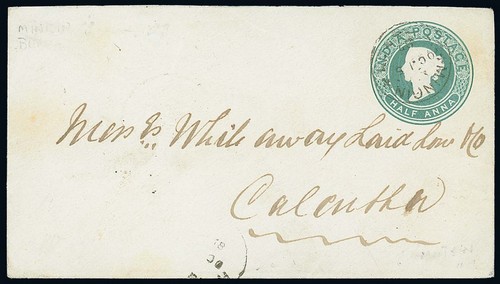 INDIA POSTAGE
HALF ANNA
Messrs Whiteaway Laidlaw & Co
Calcutta